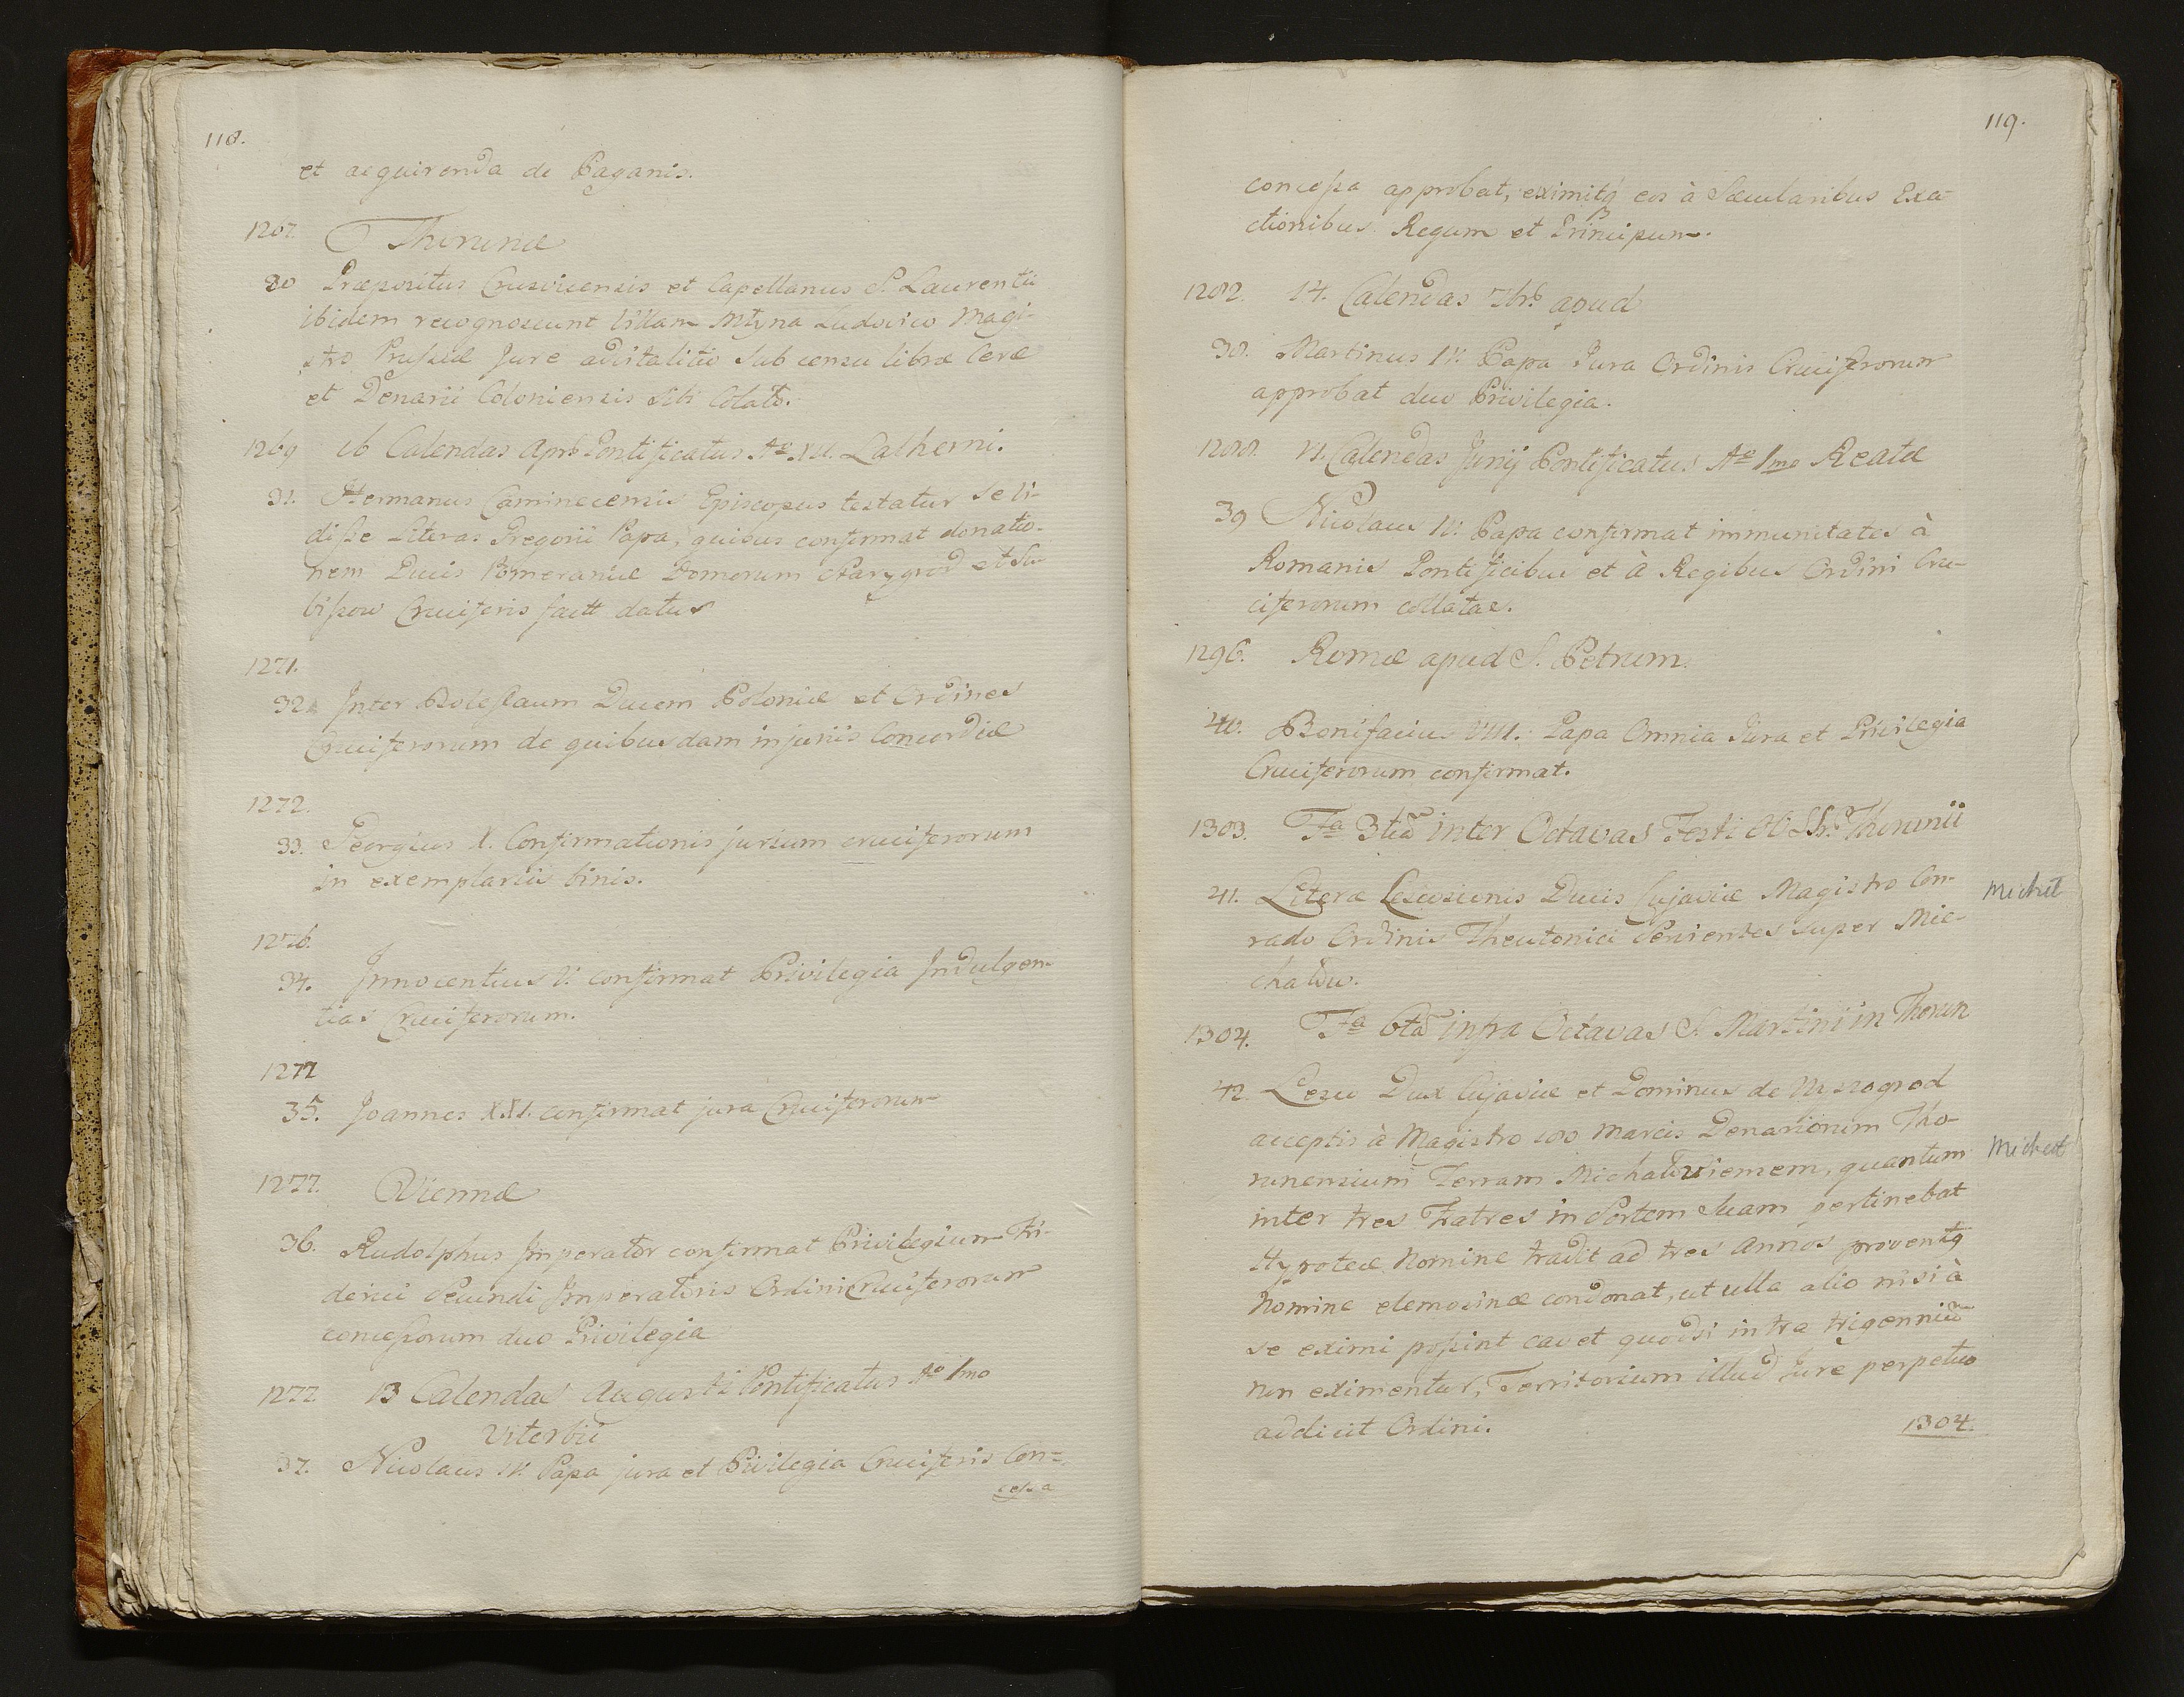 118.
et acquirenda de Paganis.
1267. Thorunæ
30 Præpositus Crusvicensis et Capellanus S. Laurentii
ibidem recognoscunt Villam Mlyna Ludovico Magi-
stro Prussiæ Jure advitalitio sub censu libræ Ceræ
et Denarii Coloniensis sibi Colato.
1269 16 Calendas Apr. Pontificatus Ao XII. Lathemi.
31. Hermanus Caminecensis Episcopus testatur se vi-
disse Literas Gregorii Papæ, quibus confirmat donatio-
nem Ducis Pomeraniæ Domorum Starzgrod et Su-
bisow Cruciferis datus
1271.
32. Inter Boleslaum Ducem Poloniæ et Ordines
Cruciferorum de quibusdam injuriis Concordiæ
1272.
33. Georgius X. Confirmationis jurium cruciferorum
in exemplariis binis.
1276.
34. Innocentius V. confirmat Privilegia Indulgen-
tias Cruciferorum.
1277
35. Joannes XXI. confirmat jura Cruciferorum
1277. Viennæ
36. Rudolphus Imperator confirmat Privilegium Fri-
derici Secundi Imperatoris Ordini Cruciferorum
concessorum duo Privilegia
1277. 13 Calendas Augusti Pontificatus Ao 1mo
Viterbii
37. Nicolaus IV. Papa jura et Privilegia Cruciferis Con=
cessa
119.
concessa approbat, eximitq eos à Sæcularibus Exa-
ctionibus Regum et Principum.
1282. 14. Calendas 7br. apud
38. Martinus IV. Papa Jura Ordinis Cruciferorum
approbat duo Privilegia.
1288. VI. Calendas Junij Pontificatus Ao 1mo Reatæ
39 Nicolaus IV. Papa confirmat immunitates à
Romanis Pontificibus et à Regibus Ordini Cru-
ciferorum collatas.
1296. Romæ apud S. Petrum.
40. Bonifacius VIII. Papa Omnia Jura et Privilegia
Cruciferorum confirmat.
1303. Fa 3tia inter Octavas Festi OO SSr. Thorunii
41. Literæ Lescsionis Ducis Cujaviæ Magistro Con-
rado Ordinis Theutonici Servientes super Mic-
halow.
Michał
1304. Fa 6ta infra Octavas S. Martini in Thorun
42. Lesco Dux Cujaviæ et Dominus de Wyszogrod
acceptis à Magistro 180 Marcis Denariorum Tho-
runensium Terram Michaloviensem, quantum
Michał
inter tres Fratres in Sortem Suam pertinebat
Hypotecæ Nomine tradit ad tres annos proventq
Nomine elemosinæ condonat, ut ulla alio nisi à
se eximi possint cavet quodsi intra trigennium
non eximentur, Territorium illud Jure perpetuo
addicit Ordini.
1304.